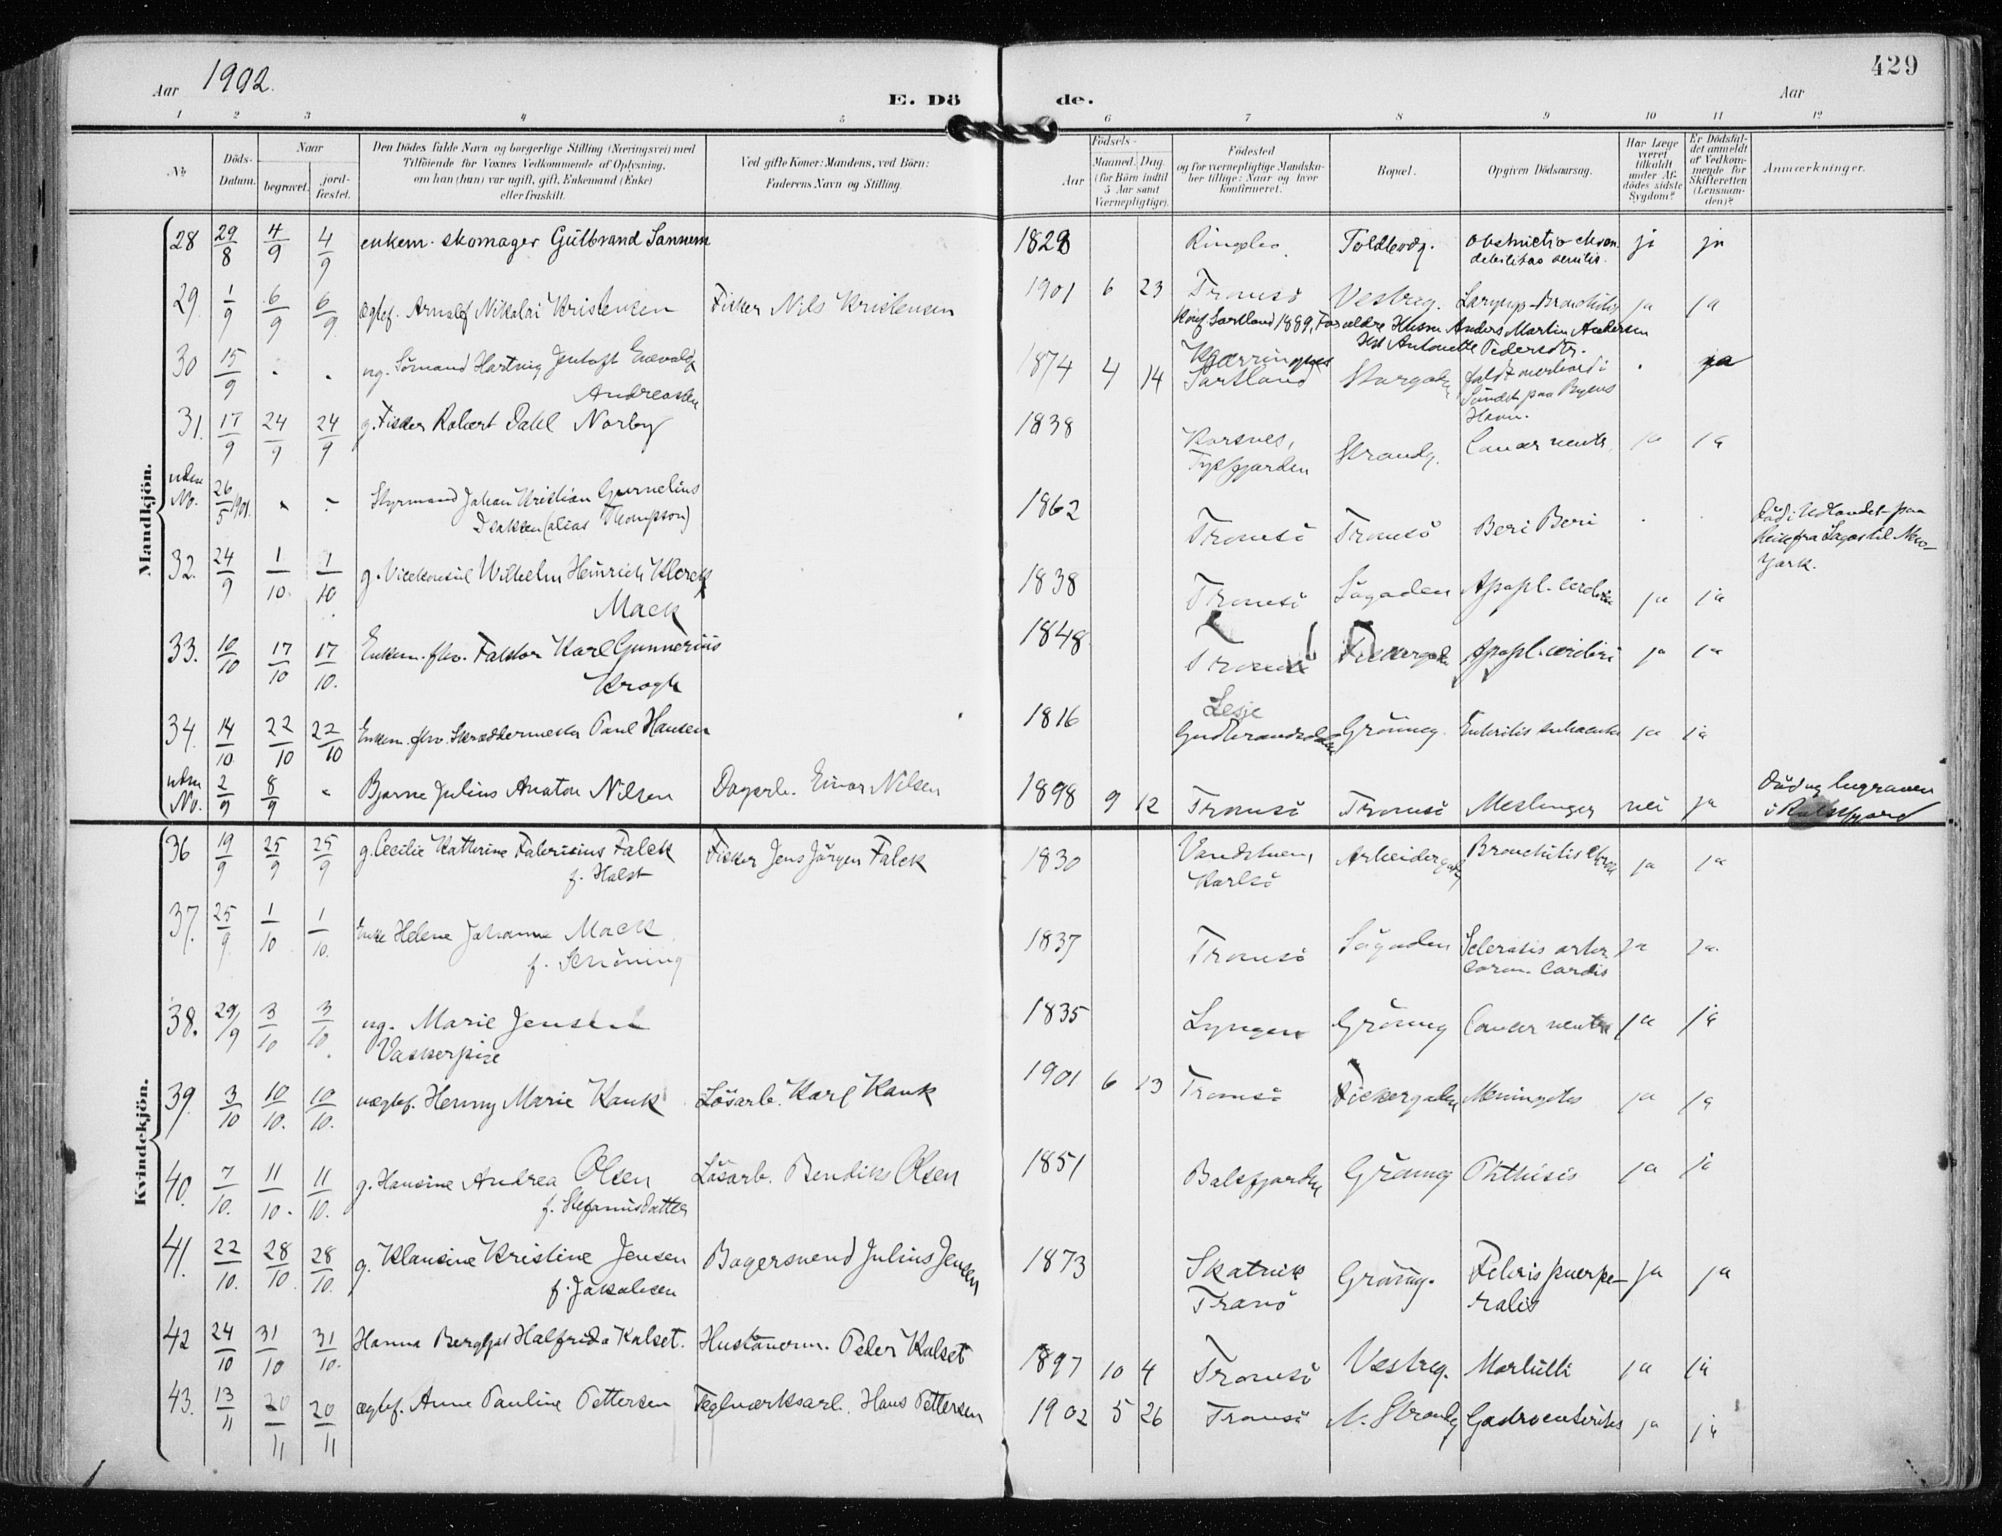 Aar 1902.
E. Döde.
Aar
429
1 2 3 4 5 6 7 8 9 10 11 12
No
Döds-Datum.
Naar
begravet.
jord-fæstet.
Den Dödes fulde Navn og borgerlige Stilling (Næringsvei) med
Tilföiende for Voxnes Vedkommende af Oplysning,
om han (hun) var ugift, gift, Enkemand (Enke)
eller fraskilt.
Ved gifte Koner: Mandens, ved Börn:
Faderens Navn og Stilling.
Födsels-
Aar
Maaned. Dag.
(for Börn indtil
5 Aar samt
Værnepligtige).
Födested
og for værnepligtige Mandska-
ber tillige: Naar og hvor
konfirmeret.
Bopæl.
Opgiven Dödsaarsag.
Har Læge
været
tilkaldt
under Af-
dödes sidste
Sygdom?
Er Dödsfal-
det anmeldt
af Vedkom-
mende for
Skifteretten
(Lensman-
den)?
Anmærkninger.
Mandkjön.
28 29/8 4/9 4/9 enkem. skomager Gulbrand Sannem 1828 Toldbodg. obstructio chron. debilitas senilis. ja ja
29. 1/9 6/9 6/9 ægtef. Arnalf Nikolai Kristensen Fisker Nils Kristensen 1901 6 23 Tromsö Vestreg. Laryngo-Bronchitis ja ja
Konf Sortland 1889, Forældre Husm Anders Martin Andersen
Hst Antonette Pedersdtr.
30 15/9 - - ug. Hartvig Jentoft Enevold Andreassen 1874 4 14 Sortland Storgaden faldt overbord i
Sundet paa Byens
Havn. ja
31. 17/9 24/9 24/9 g. Fisker Robert Dahl Norby 1838 Korsnes,
Tysfjorden Strandg. Cancer ventr. ja ja
uden No. 26/5 1901. - - Styrmand Johan Kristian Gurnelius
Isaksen (alias Thompson) 1862 Tromsö Tromsö Beri Beri Död i Udlandet paa
Reise fra Lagos til New-
York.
32. 24/9 1/10. 1/10 g. Vicekonsul Wilhelm Heinrich Klerck
Mack 1838 Tromsö Sögaden Apopl. cerebri ja ja
33. 10/10 17/10 17/10. Enkem. fhv. Faktor Karl Gunnerius
Krogh 1848 Tromsö Fiskergaden Apopl. cerebri ja ja
34. 14/10 22/10 22/10 Enkem. fhv. Skræddermester Paul Hansen 1816 Lesje
Gudbrandsdalen Grönneg. Enteritis subacuta ja ja
uden No. 2/9 8/9 - Bjarne Julius Anaton Nilsen Dagarb. Einar Nilsen 1898 9 12 Tromsö Tromsö Meslinger nei ja Död og begraven
i
Kvindekjön.
36 19/9 25/9 25/9 g. Cecilie Katherine Falck
f. Holst Fisker Jens Jörgen Falck 1830 Vandstuen,
Karlsö Arbeidergaden Bronchitis chron ja ja
37. 25/9. 1/10 1/10. Enke Helene Johanne Mack
f. Schöning 1837 Tromsö Sögaden Sclerosis arter.
coron. cordis ja ja
38. 29/9 3/10 3/10. ug. Marie Jensen
Vaskerpige 1835 Lyngen Gröneg Cancer ventr ja ja
39. 3/10 10/10. 10/10. uægtef. Henny Marie Kank Lösarb. Karl Kank 1901 6 13 Tromsö Fiskergaden Meningitis ja ja
40. 7/10. 11/10. 11/10. g. Hansine Andrea Olsen
f. Stefanusdatter Lösarb. Bendiks Olsen 1851 Balsfjorden Gröneg Phthisis ja ja
41. 22/10. 28/10 28/10. g. Klausine Kristine Jensen
f. Jakobsen Bagersvend Julius Jensen 1873 Skatvik
Tranö Gröneg. Febris puerpe-
ralis ja ja
42 24/10 31/10 31/10. Hanna Bergljot Halfrida Kalset. Peder Kalset 1897 10 4 Tromsö Vestreg. Morbilli ja ja
43. 13/11 20/11 20/11 ægtef. Anne Pauline Pettersen Teglværksarb. Hans Pettersen 1902 5 26 Tromsö N. Strandg Gastroenteritis ja ja